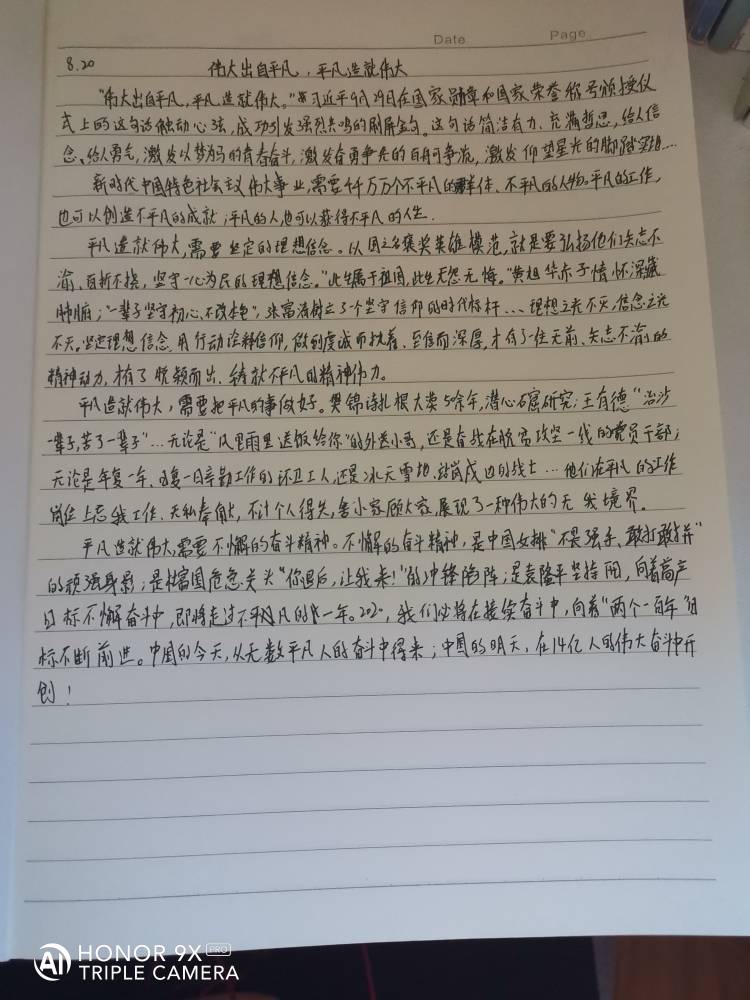 Date
Page
8.20
伟大出自平凡，平凡造就伟大
"伟大出自平凡，平凡造就伟大。"习近平9月29日在国家勋章和国家荣誉称号颁授仪
式上的这句话触动心弦，成功引发强烈共鸣的刷屏金句。这句话简洁有力、充满哲思，给人信
念、给人勇气，激发以梦为马的青春奋斗，激发奋勇争先的百舸争流，激发仰望星光的脚踏实地…
新时代中国特色社会主义伟大事业，需要千千万万个不平凡的群体、不平凡的人物。平凡的工作，
也可以创造不平凡的成就；平凡的人也可以获得不平凡的人生.
平凡造就伟大，需要坚定的理想信念。以国之名褒奖英雄模范，就是要弘扬他们矢志不
渝、百折不挠，坚守一心为民的理想信念。"此生属于祖国，此生无怨无悔。"黄旭华赤子情怀深藏
肺腑；"一辈子坚守初心、不改本色"，张富清树立了个坚守信仰的时代标杆…理想之光不灭，信念之光
不灭。坚定理想信念，用行动诠释信仰，做到虔诚而执着、至信而深厚，才有了一往无前、矢志不渝的
精神动力，才有了脱颖而出、铸就不平凡的精神伟力。
平凡造就伟大，需要把平凡的事做好。樊锦诗扎根大漠50余年，潜心石窟研究；王有德"治沙
一辈子，苦了一辈子"…无论是"风里雨里送饭给你"的外送小哥，还是奋战在脱贫攻坚一线的党员干部；
无论是年复一年、日复一日辛勤工作的环卫工人，还是冰天雪地、站岗戍边的战士…他们在平凡的工作
岗位上忘我工作、无私奉献，不计个人得失，舍小家顾大家，展现了一种伟大的无我境界。
平凡造就伟大，需要不懈的奋斗精神。不懈的奋斗精神，是中国女排"不畏强手、敢打敢拼"
的顽强身影；是杜富国危急关头"你退后，让我来！"的冲锋陷阵；是袁隆平坚持，向着高产
目标不懈奋斗中，即将走过不平凡的一年。2020，我们必将在接续奋斗中，向着"两个一百年"目
标不断前进。中国的今天，从无数平凡人的奋斗中得来；中国的明天，在14亿人的伟大奋斗中开
创！
HONOR 9X PRO
TRIPLE CAMERA